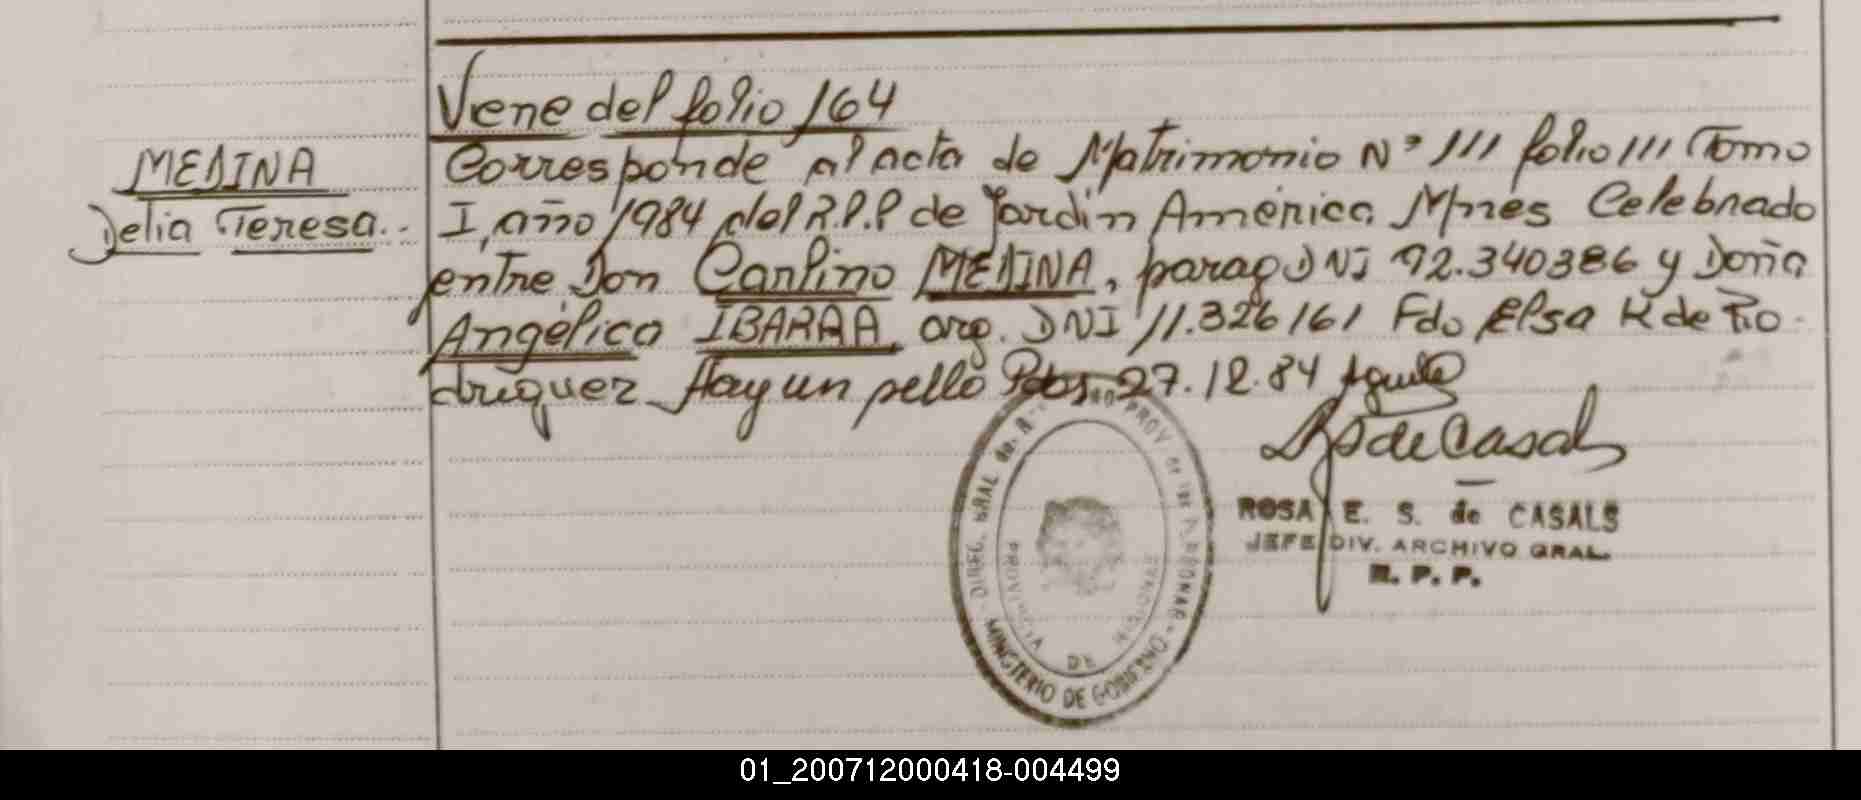 Viene del folio 164
MEDINA
Delia Teresa..
Corresponde al acta de Matrimonio Nº 111 folio 111 Tomo
I, año 1984 del R.P.P de Jardín América Mnes Celebrado
entre Don Carlino MEDINA, parag DNI 92.340386 y Doña
Angélica IBARRA, arg. DNI 11.326161 Fdo Elsa K de Ro-
driguez Hay un sello Pdas 27.12.84
ROSA E. S. de CASALS
JEFE DIV. ARCHIVO GRAL.
R. P. P.
DIREC. GRAL de PROV de MISIONES
PROVINCIA DE MISIONES
MINISTERIO DE GOBIERNO
01_200712000418-004499